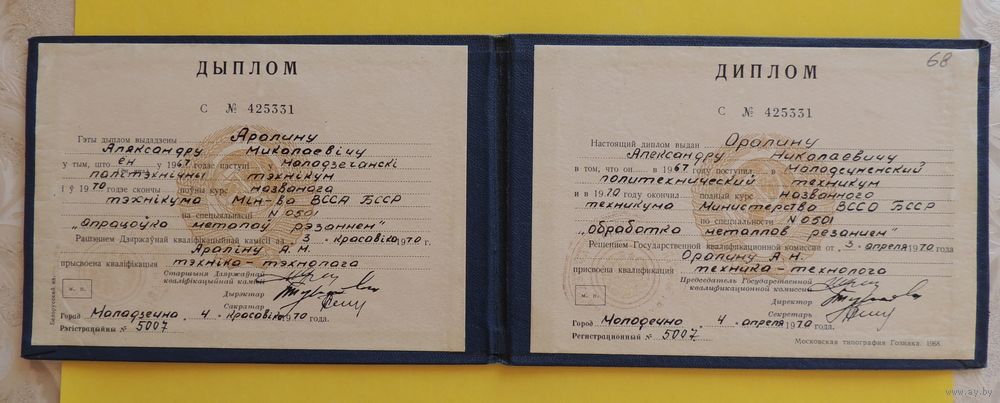 ДЫПЛОМ
С № 425331
Гэты дыплом выдадзены Аролину
Аляксандру Мікалаевічу
у тым, што ён у 1967 годзе паступіў Маладзечанскі
політэхнічны тэхнікум
і ў 1970 годзе скончыў поўны курс названага
тэхнікума Мін-ва ВССА БССР
па спецыяльнасці № 0501
„апрацоўка металаў рэзаннем"
Рашэннем Дзяржаўнай кваліфікацыйнай камісіі ад 3 . красавіка 1970 г.
Араліну А.М.
прысвоена кваліфікацыя
тэхніка-тэхнолага
Старшыня Дзяржаўнай
кваліфікацыйнай камісіі
Дырэктар
Сакратар
М. П.
Горад Маладзечна 4 . красавіка 1970 года.
Рэгістрацыйны № 5007
Белорусский яз.
68
ДИПЛОМ
С № 425331
Настоящий диплом выдан Оролину
Александру Николаевичу
в том, что он в 1967 году поступил в Молодечненский
политехнический техникум
и в 1970 году окончил полный курс названного
техникума Министерство ВССО БССР
по специальности № 0501
„обработка металлов резанием"
Решением Государственной квалификационной комиссии от 3 . апреля 1970 года
Оролину А.Н.
присвоена квалификация техника-технолога
Председатель Государственной
квалификационной комиссии
Директор
Секретарь
М. П.
Город Молодечно 4 . апреля 1970 года.
Регистрационный № 5007
Московская типография Гознака. 1968.
www.ay.by